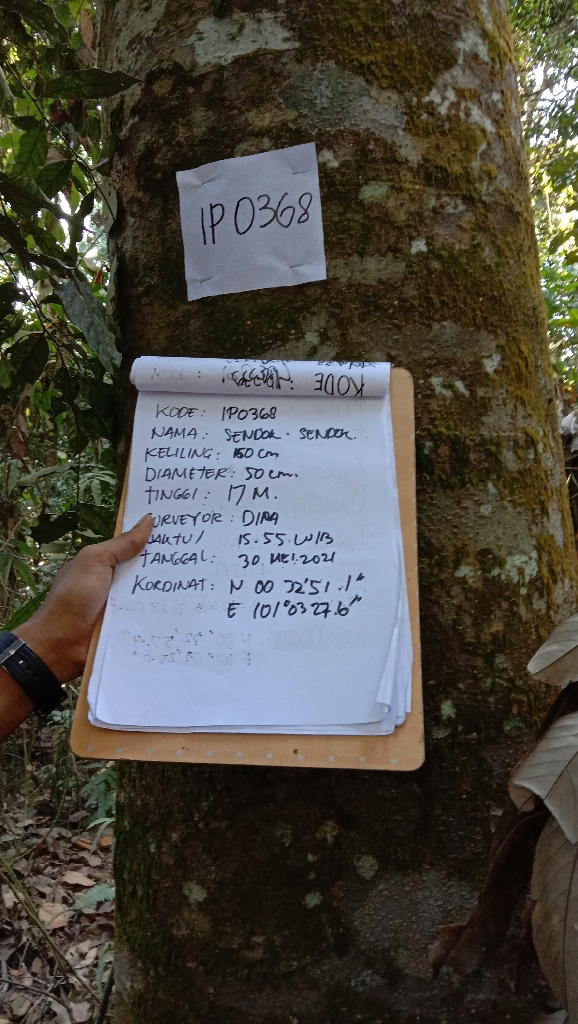 IP0368
KODE
KODE: IP0368
NAMA: SENDOK - SENDOK.
KELILING: 160 cm
DIAMETER: 50 cm.
TINGGI: 17 M.
SURVEYOR: DIRA
WAKTU/ 15.55. WIB
TANGGAL: 30 MEI. 2021
KORDINAT: N 00 32'51.1"
E 101°03'27.6"